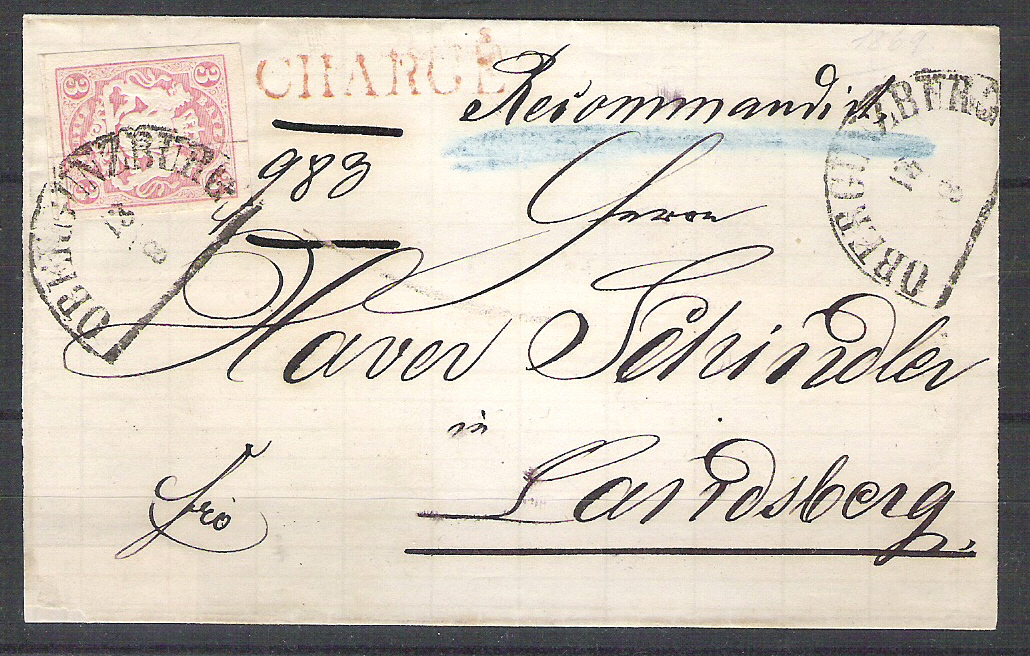 1869
3 3
CHARGÉ
Recommandirt
983
Herrn
Xaver Schindler
in
Landsberg.
frco
OBERGÜNZBURG
13 8
OBERGÜNZBURG
13 8